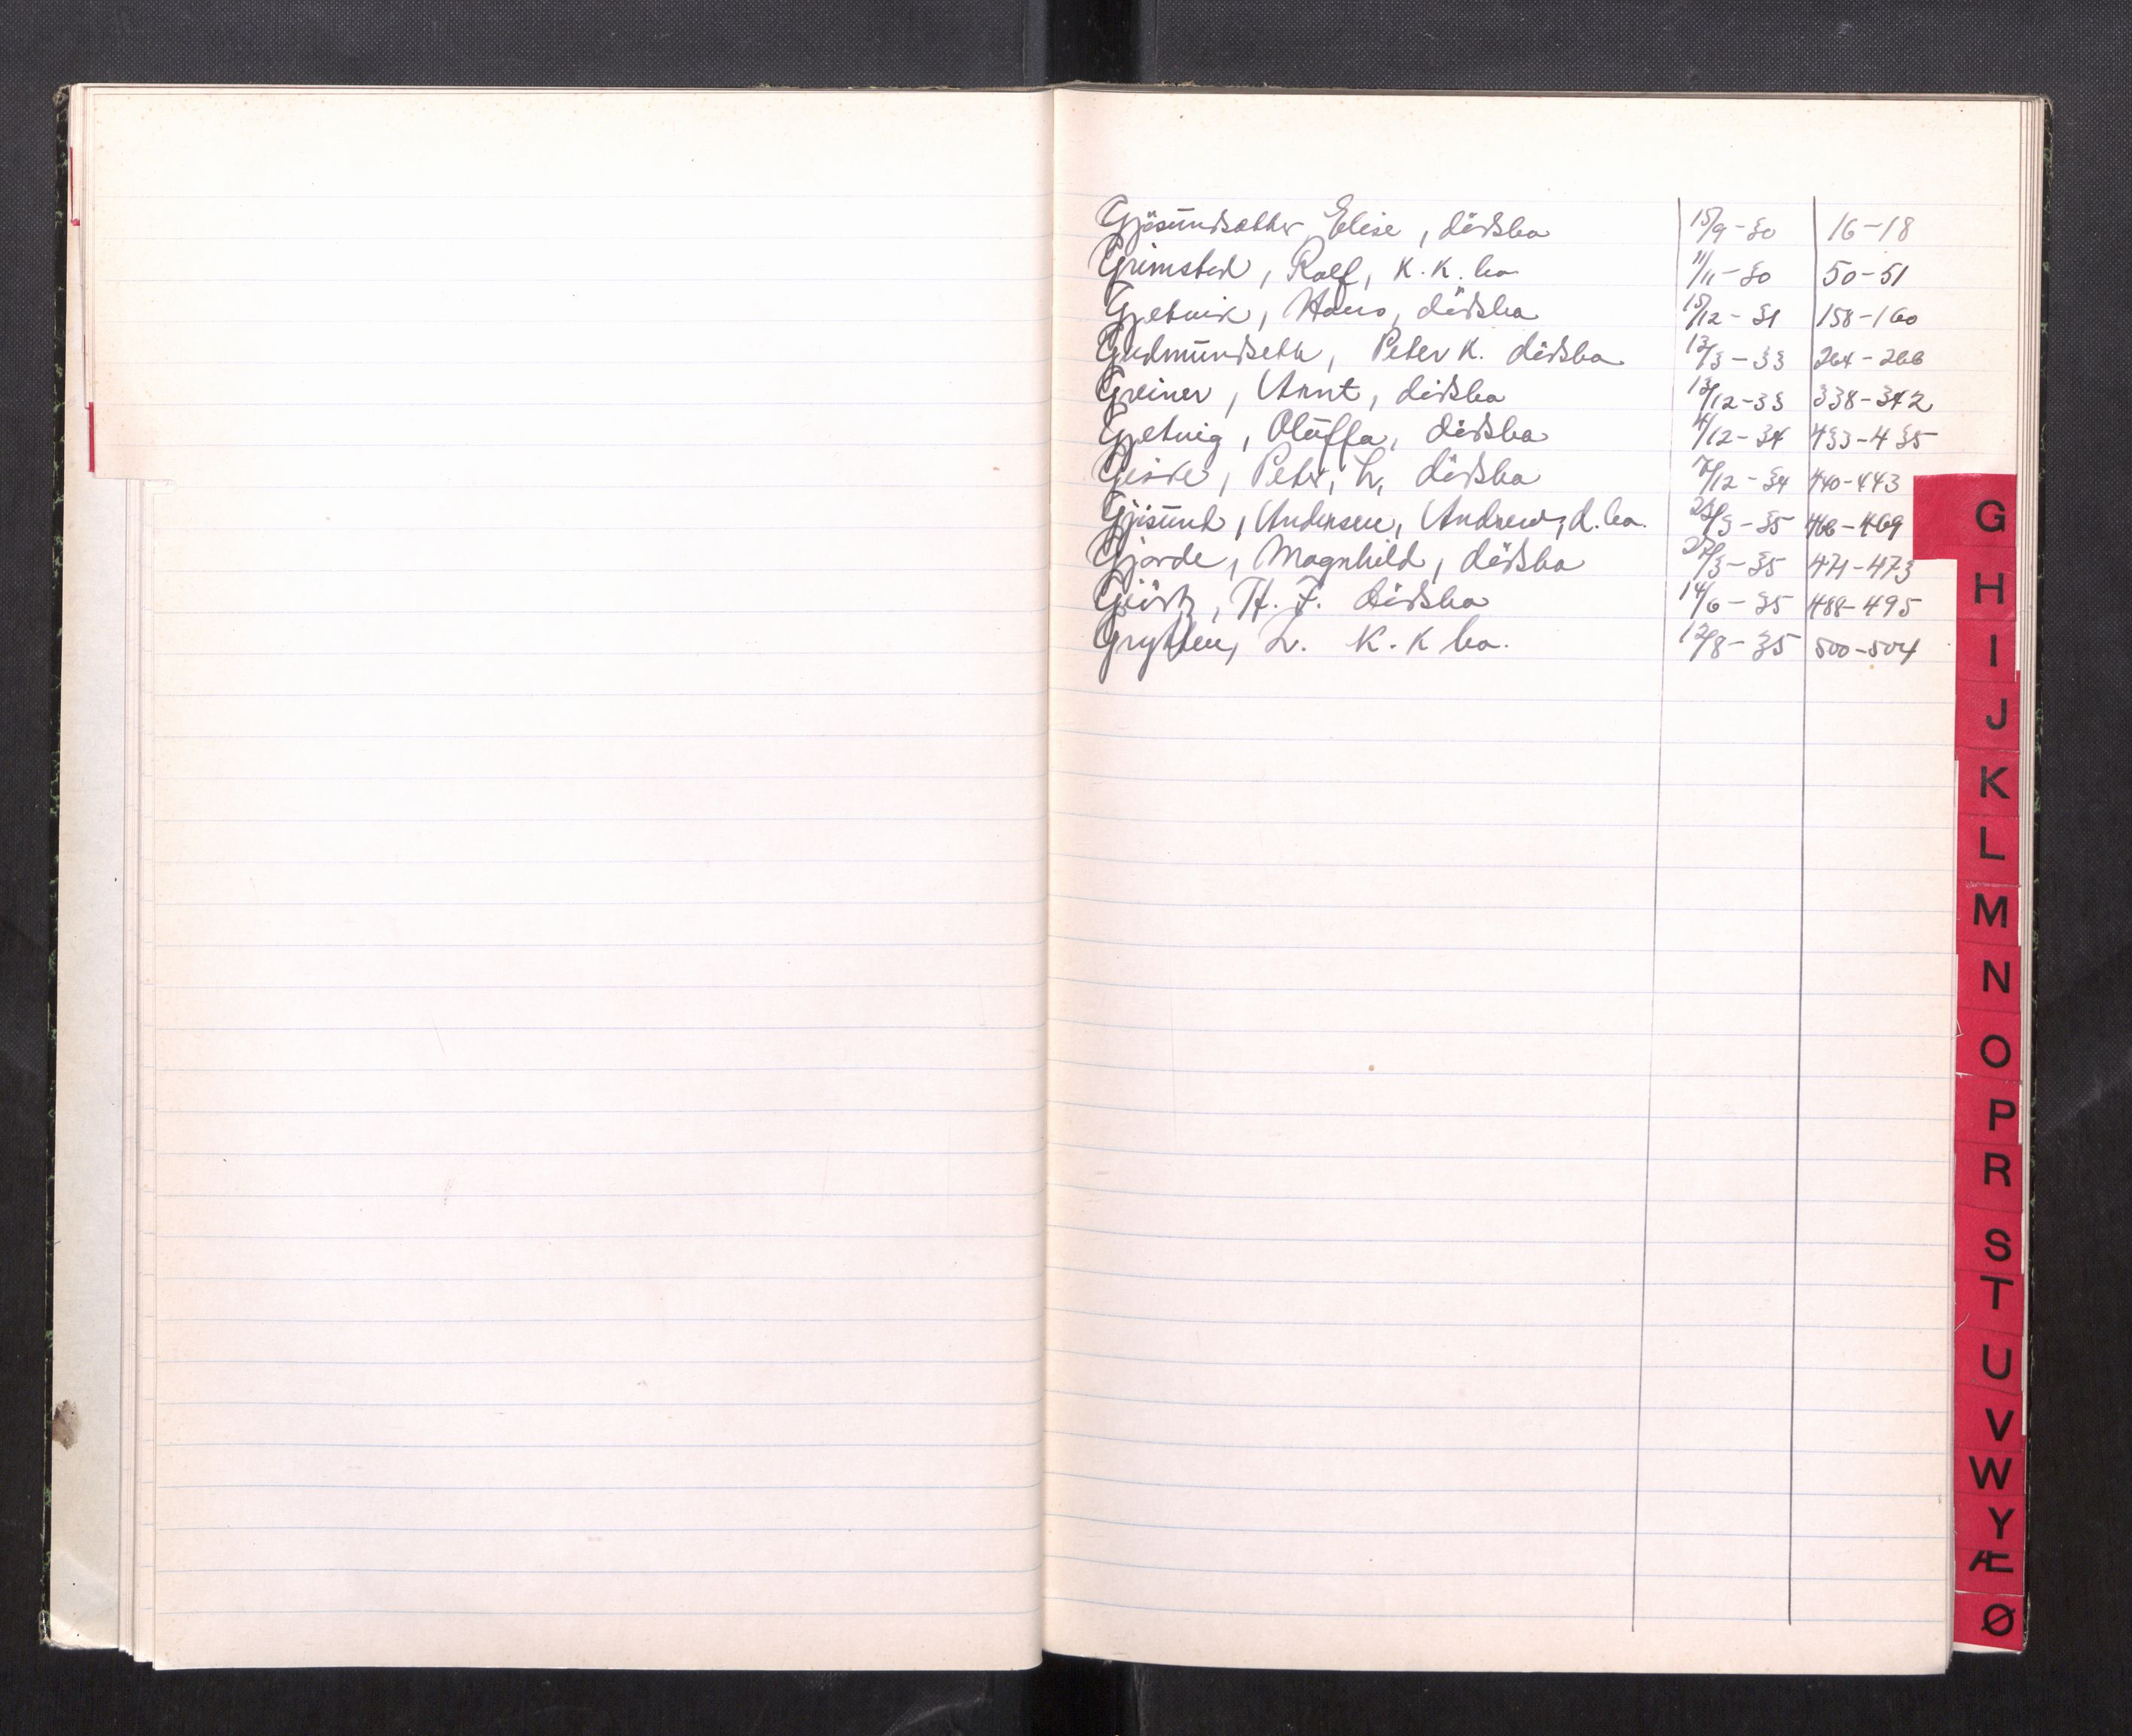 Gjøsundsæther, Elise, dödsbo 15/9-30 16-18
Grimstad, Rolf, K.K. bo 11/11-30 50-51
Gjetvik, Hans, dödsbo 15/12-31 158-160
Gudmundseth, Peter K. dödsbo 13/3-33 264-266
Greiner, Arnt, dödsbo 13/12-33 338-342
Gjetvig, Oluffa, dödsbo 4/12-34 433-435
Giske, Peter, L, dödsbo 7/12-34 440-443
Gjösund, Andersen, Andreas, d.bo. 23/3-35 466-469
Gjørde, Magnhild, dödsbo 27/3-35 471-473
Giörtz, H. J. dödsbo 14/6-35 488-495
Grytten, L. K.K bo. 12/8-35 500-504
G
H
I
J
K
L
M
N
O
P
R
S
T
U
V
W
Y
Æ
Ø